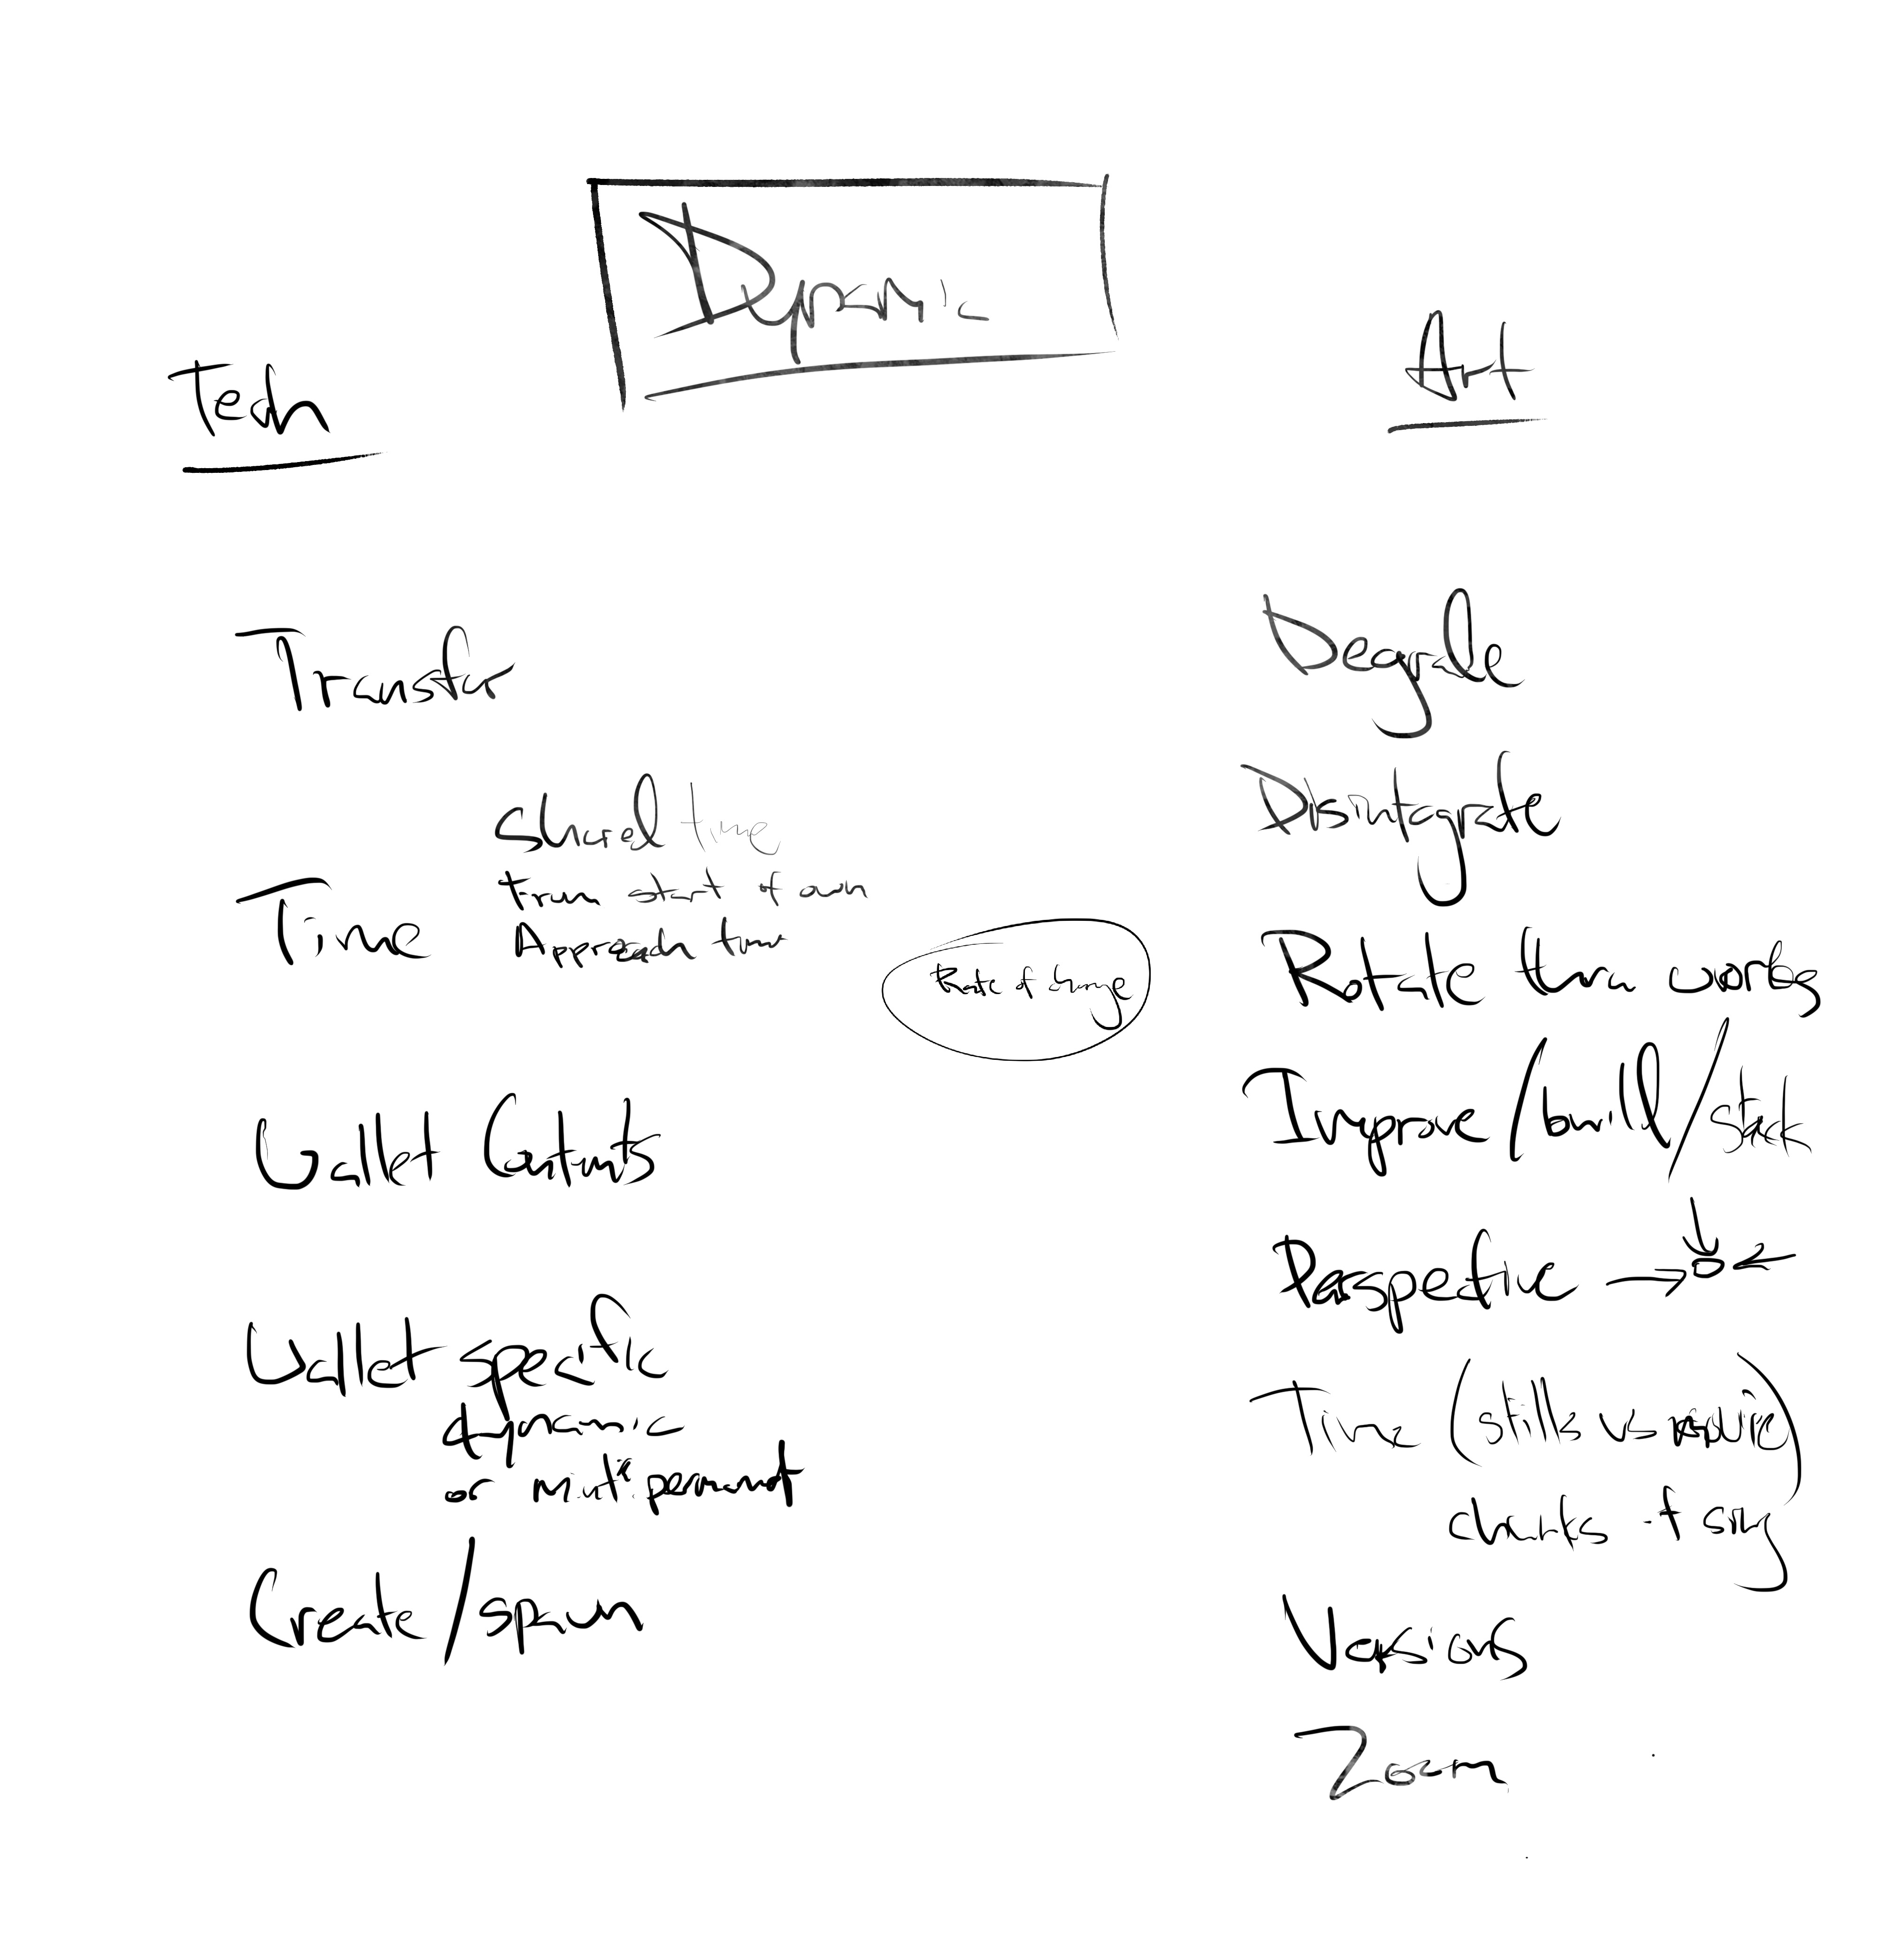 Dynamic
Tech
Art
Transfer
Shared time
from start of own
Time
Approach time
Wallet Contents
Wallet specific
dynamic
or mint permanent
Create/spawn
Rate of change
Degrade
Disintegrate
Rotate thru works
Improve/build/stack
Perspective
Time (stills vs movie)
chunks of song
Versions
Zoom